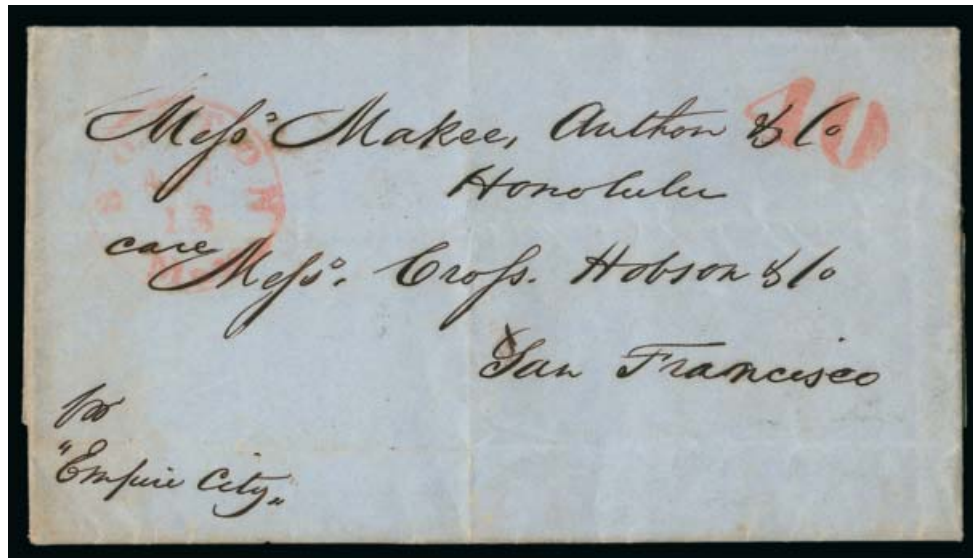 Messs Makee, Anthon & Co
Honolulu
care
Messs. Cross. Hobson & Co
San Francisco
per
"Empire City"
40
BOSTON
13
Mas